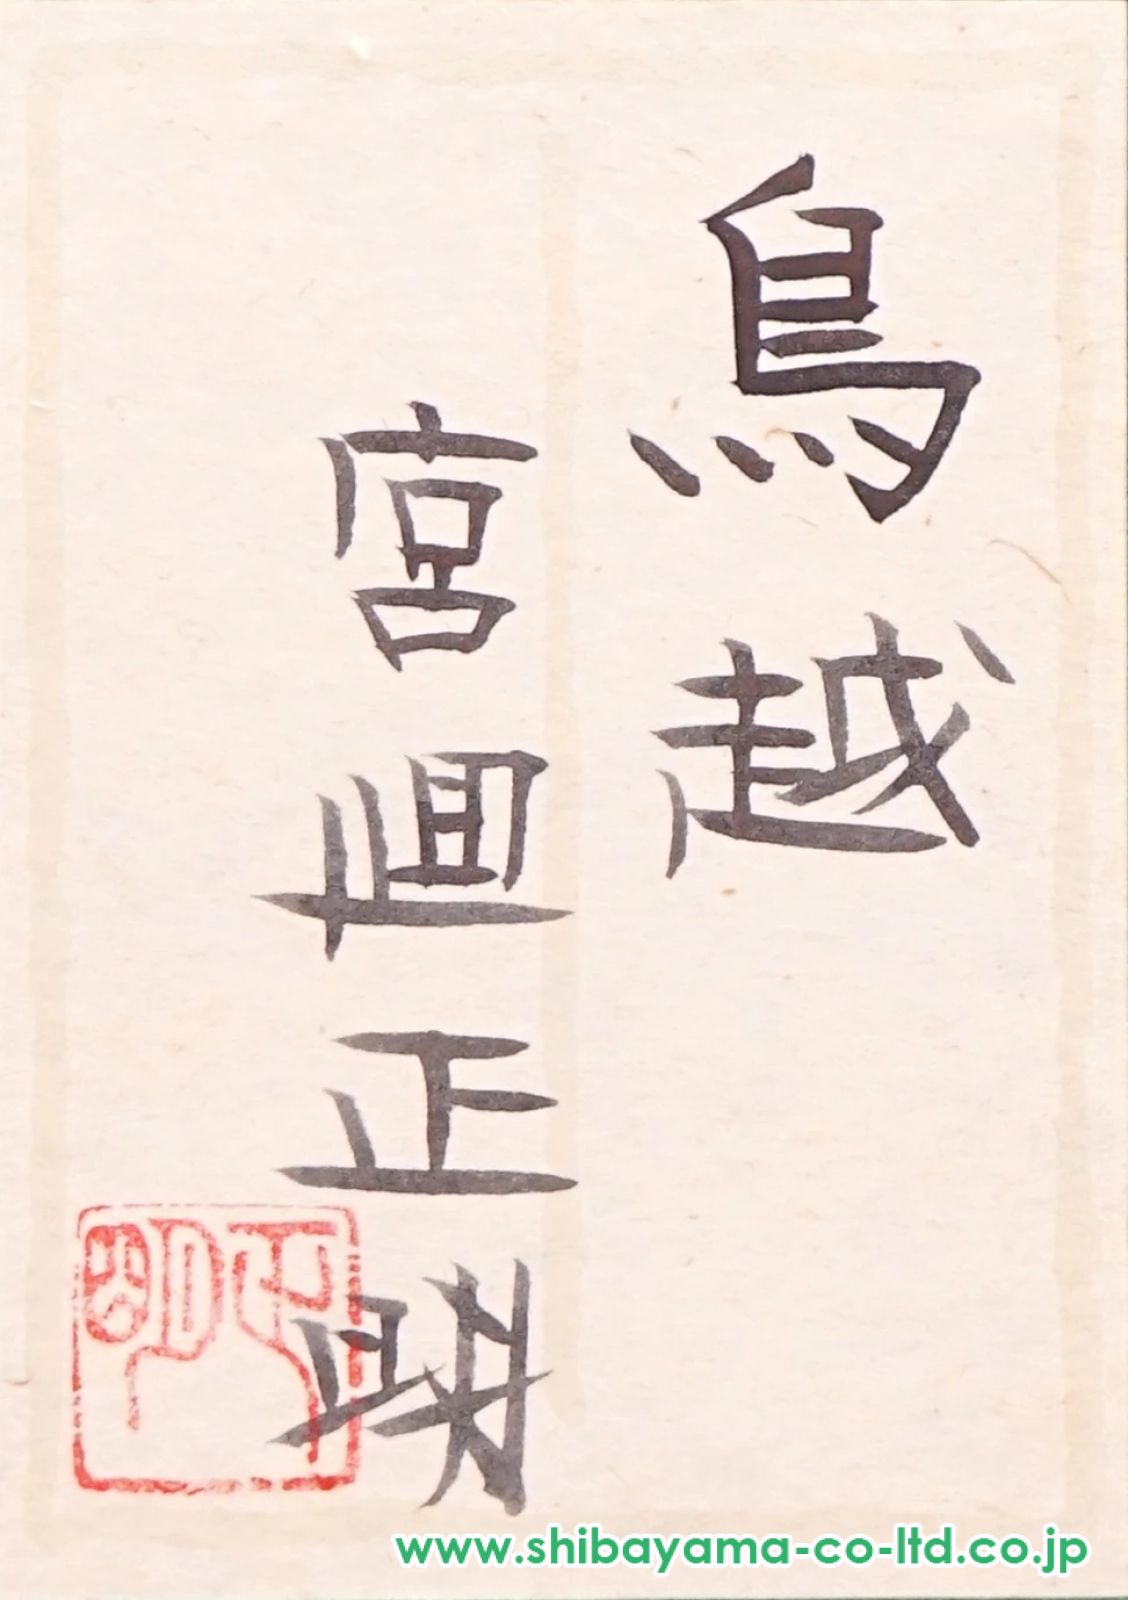 鳥越
宮廽正明
正明
www.shibayama-co-ltd.co.jp